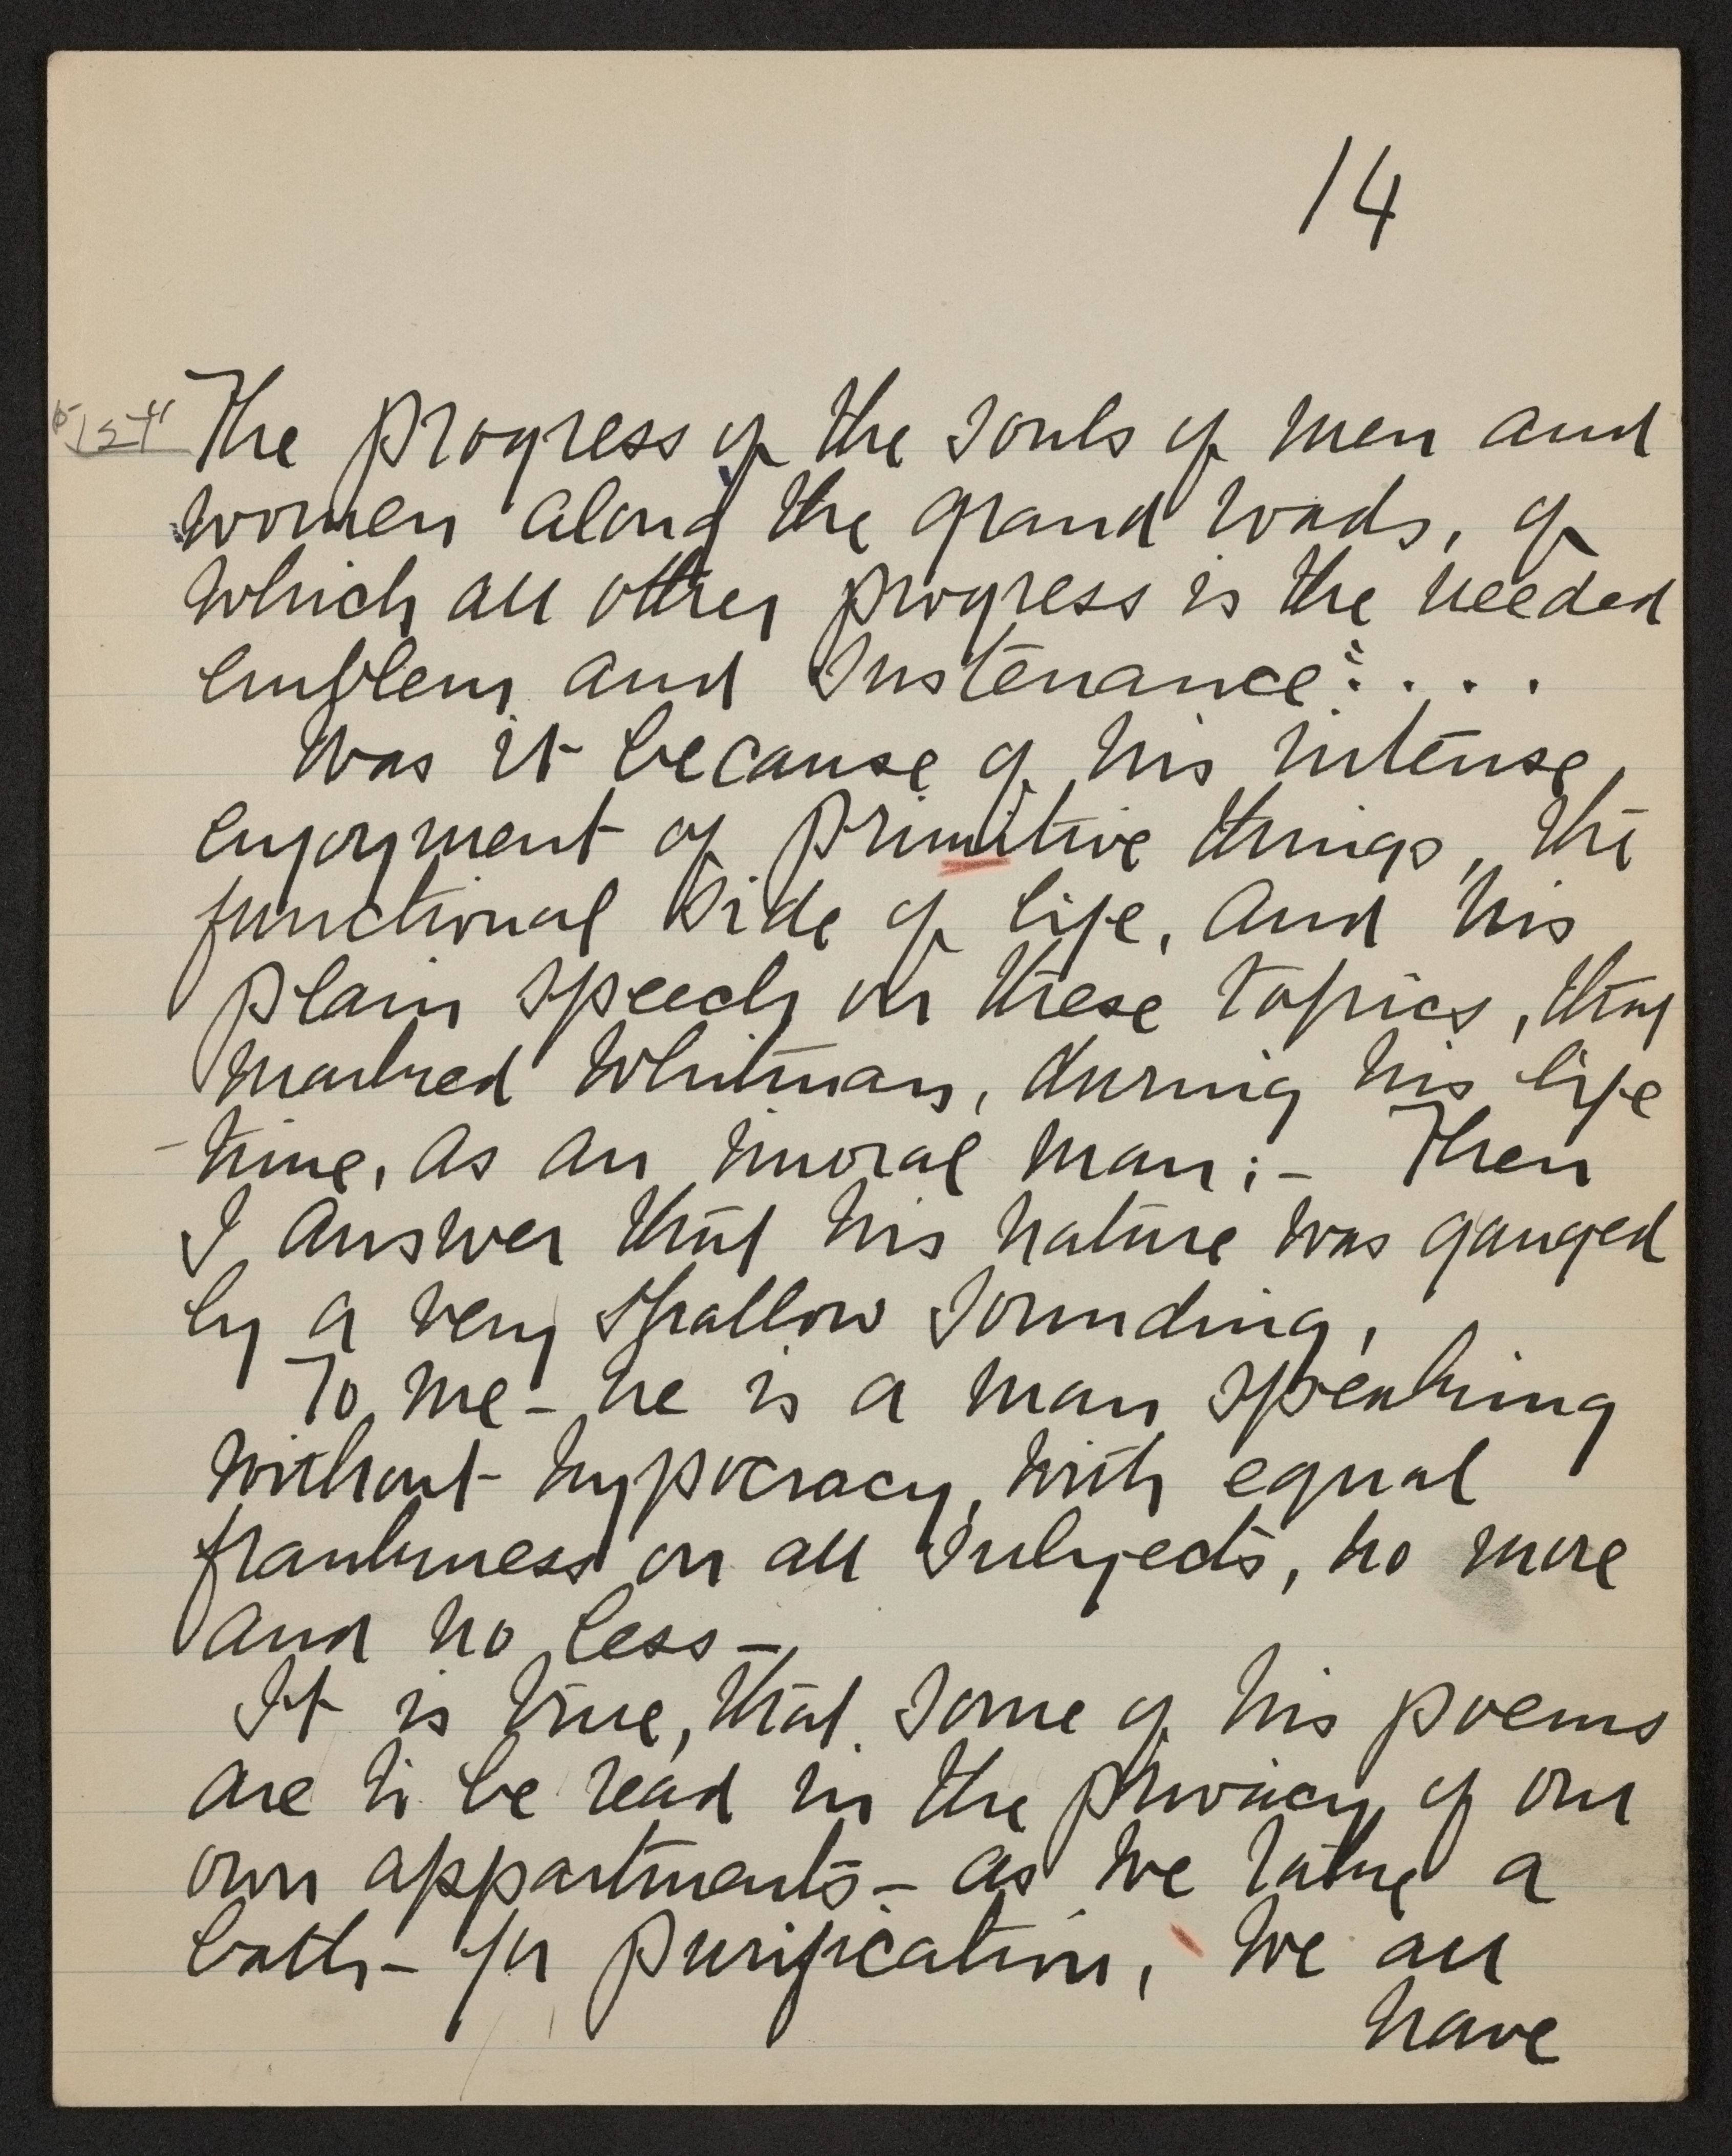 14
The progress of the souls of men and
women along the grand roads, of
which all other progress is the needed
emblem and sustenance: . . .
Was it because of his intense
enjoyment of primitive things, the
functional side of life, and his
plain speech on these topics, that
marked Whitman, during his life
-time, as an imoral man:- Then
I answer that his nature was gauged
by a very shallow sounding,
To me - he is a man speaking
without hypocracy, with equal
frankness on all subjects, no more
and no less -
It is true, that some of his poems
are to be read in the privacy of our
own appartments - as we take a
bath - for purification, We all
have